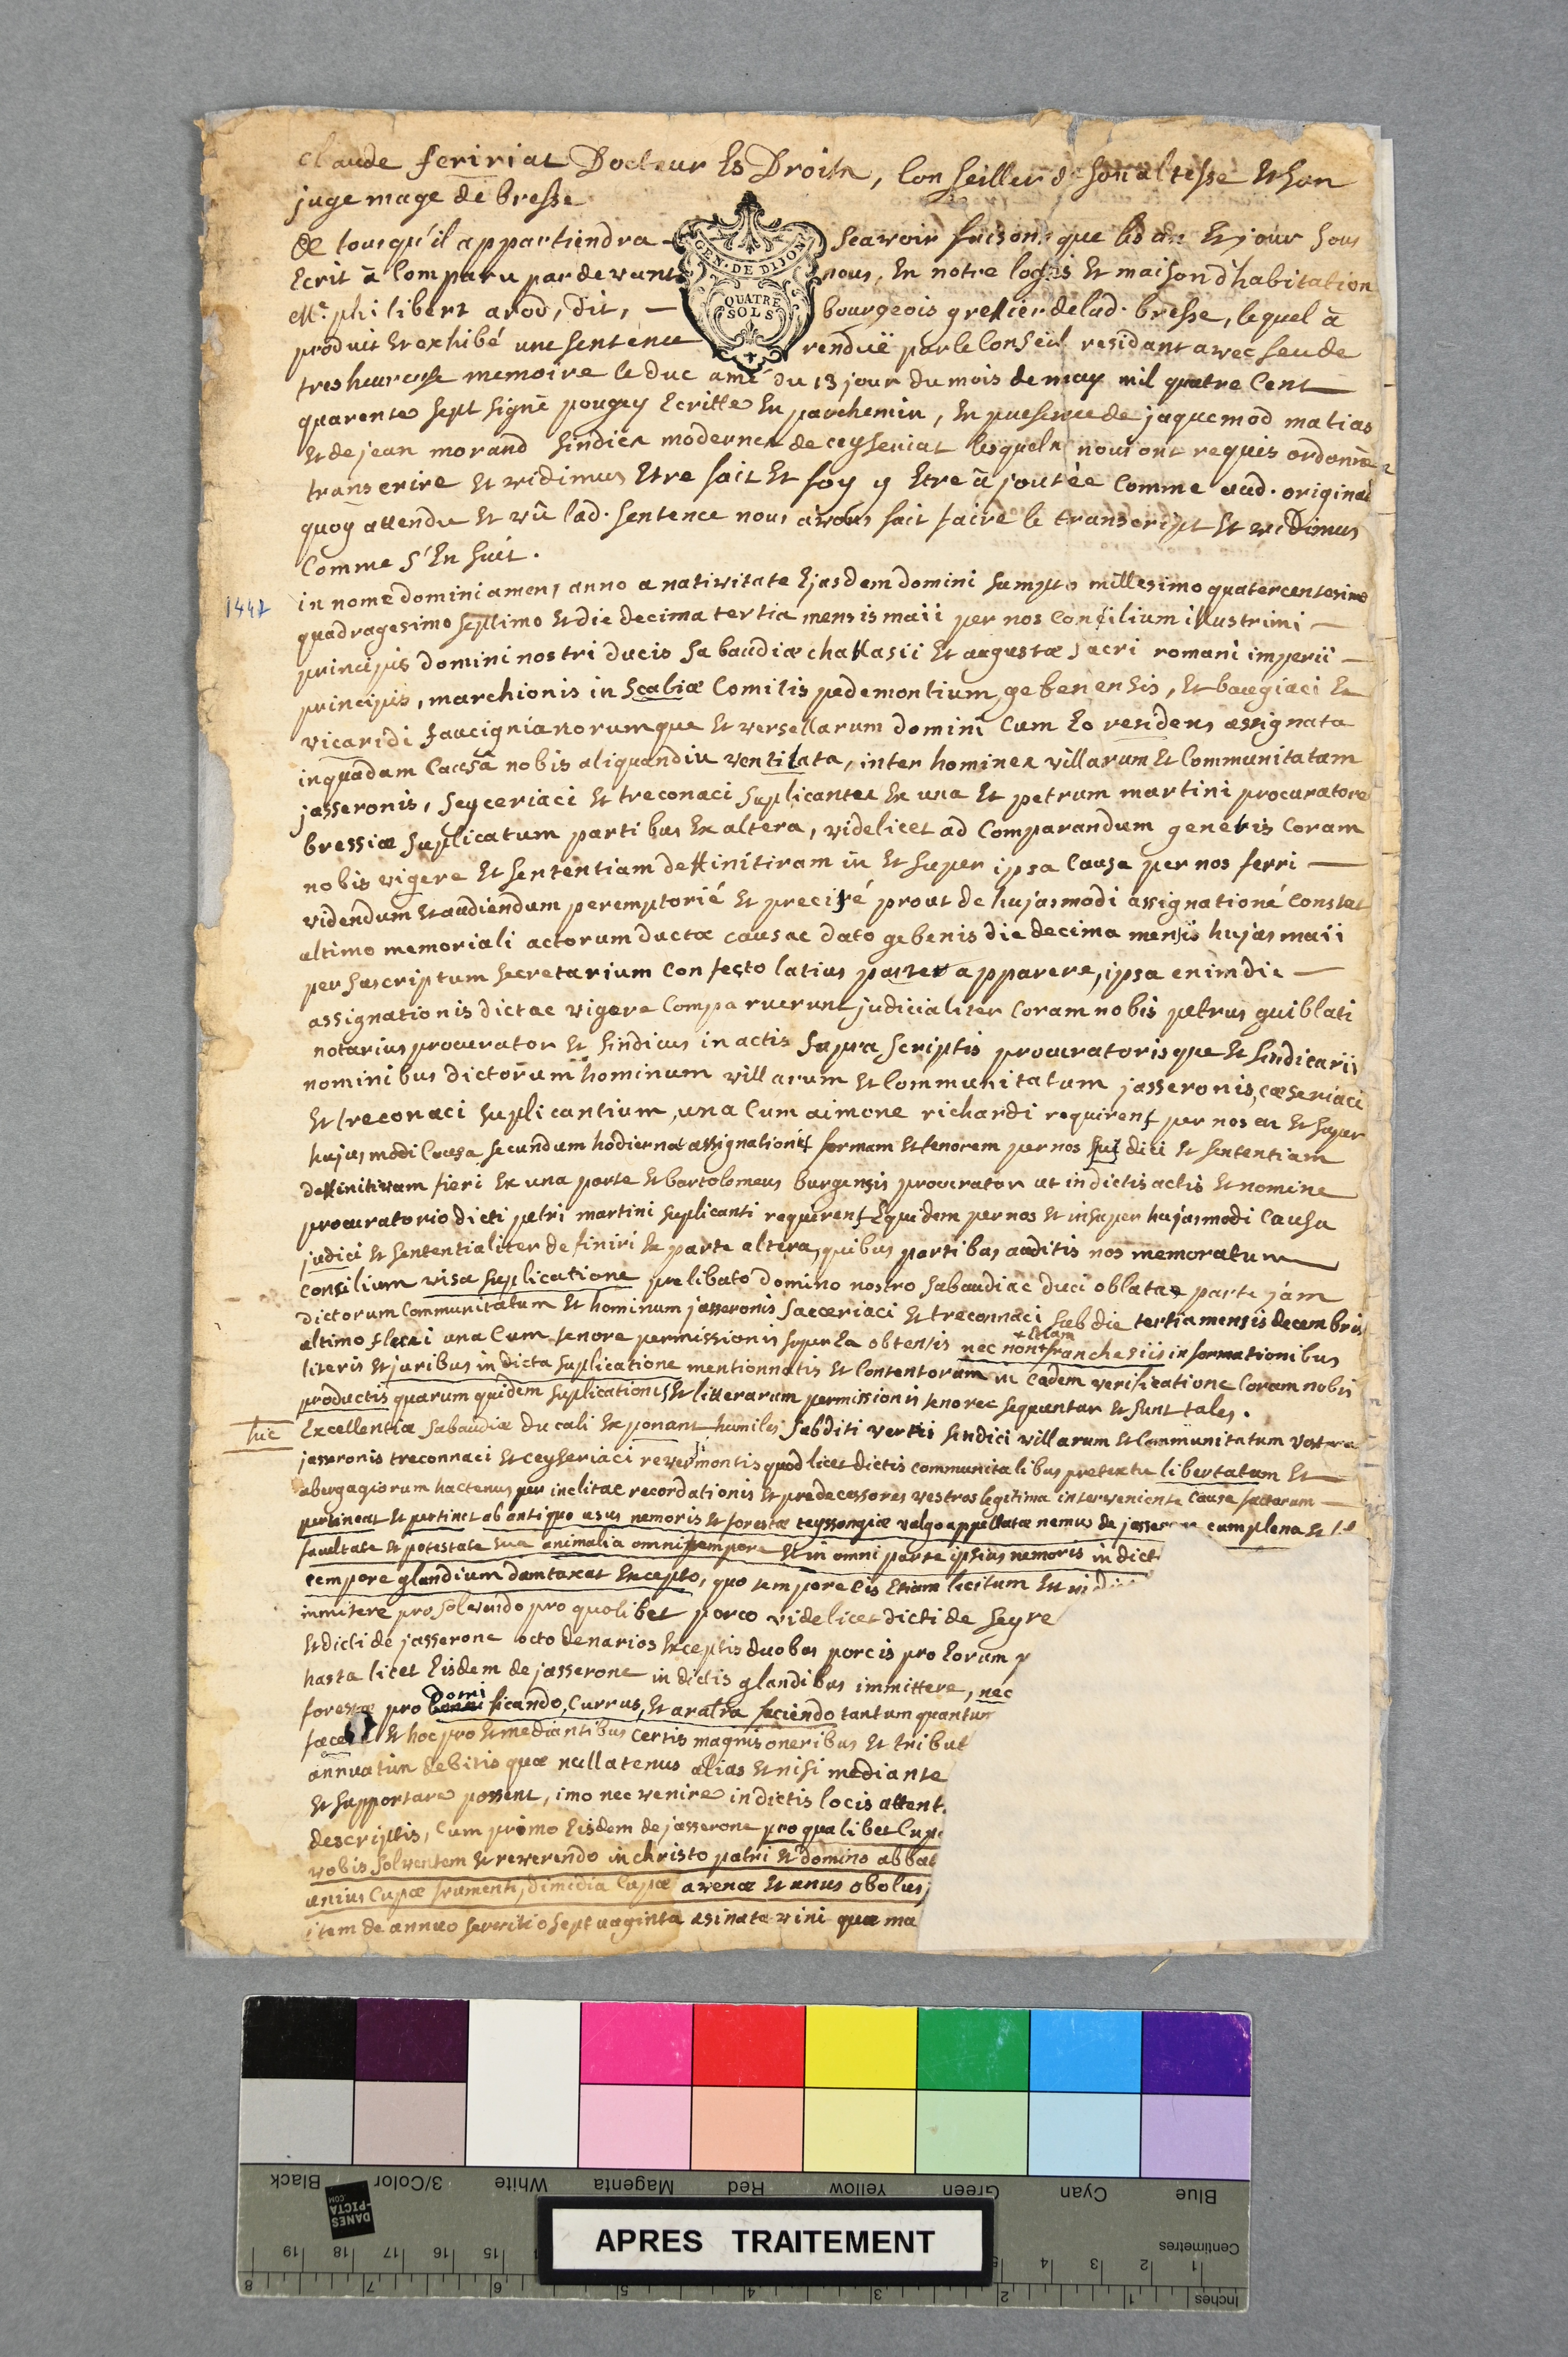 claude feririat Docteur Es Droits, Conseiller de son altesse Et son
juge mage de bresse
De tous qu'il appartiendra - scavoir faisons que les an Et jour sous
GEN. DE DIJON
QUATRE
SOLS
Ecrit à Comparu par devant nous, En notre logis Et maison d'habitation
Me. philibert arod, dit, — bourgeois greffier de lad. bresse, lequel à
produit Et exhibé une sentence renduë par le Conseil residant avec feu de
tres heureuse memoire le duc amé du 13 jour du mois de may mil quatre Cent
quarente sept signé pougey Ecritte En parchemin, En presence de jaquemod matias
Et de jean morand sindics modernes de ceyseriat lesquels nous ont requis ordonner
transcrire Et vidimus Etre fait Et foy y Etre ajoutée Comme aud. original
quoy attendu Et vû lad. sentence nous avons fait faire le transcript Et vidimus
Comme s'En suit.
1447
in nome domini amen, anno a nativitate Ejasdem domini sumpto millesimo quatercentesimo
quadragesimo septimo Et die decima tertia mensis maii per nos Consilium illustrimi —
principis domini nostri ducis sabaudiæ challasii Et augustæ sacri romani imperii —
principis, marchionis in scaliæ Comitis pedemontium gebenensis, Et baugiaci Et
vicaridi faucignianorumque Et versellarum domini Cum Eo residens assignata
in quadam Causâ nobis aliquandiu ventilata, inter homines villarum Et Communitatam
jasseronis, seyceriaci Et treconaci suplicantes Ex una Et petrum martini procuratore
bressiæ suplicatum partibus Ex altera, videlicet ad Comparandum generis Coram
nobis vigere Et sententiam deffinitiram in Et super ipsa Causa per nos ferri —
videndum Et audiendum peremptorié Et precisé prout de hujasmodi assignationé Constat
altimo memoriali actorum ductæ causae dato gebenis die decima mensis hujas maii
per suscriptum secretarium Confecto latius patet apparere, ipsa enim die —
assignationis dictae vigere Comparuerunt judicialiter Coram nobis petrus guiblati
notarius procurator Et sindicus in actis supra scriptis procuratorisque Et sindicarii
nominibus dictorum hominum villarum Et Communitatum jasseronis, cæseriaci
Et treconaci suplicantium, una Cum aimone richardi requirens per nos in Et super
hujusmodi Causa secundum hodiernæ assignationis formam Et tenorem per nos jus dici Et sententiam
deffinitivam fieri Ex una parte Et bartolomeus burgensis procurator ut in dictis actis Et nomine
procuratorio dicti petri martini suplicanti requirens Equidem per nos Et in super hujasmodi Causa
judici Et sententialiter definiri Ex parte altera, quibus partibus auditis nos memoratum
Consilium visa suplicatione prelibato domino nostro sabaudiae duci oblatae parte jám
dictorum Communitatum Et hominum jasseronis saeceriaci Et treconnaci sub die tertia mensis decembris
altimo fluxi una Cum tenore permissionis super Ea obtensis nec non + franchesiis informationibus
+ Etiam
literis Et juribus in dicta suplicatione mentionnatis Et Contentorum in Eadem verificatione Coram nobis
productis quarum quidem suplicationis Et litterarum permissionis tenores sequuntur Et sunt tales.
huc
Excellentiæ sabaudiæ ducali Exponant humiles subditi vestri sindici villarum Et Communitatum vostrarum
jasseronis treconnaci Et ceyseriaci revermontis quod licet dictis communitatibus pretextu libertatum Et
abergagiorum hactenus per inclitae recordationis Et predecessores vestros legitima interveniente Causa factorum —
pertineat Et pertinet ab antiquo usus nemoris Et forestæ teyssongiæ valgo appellatæ nemus de jasserone cum plena Et
facultate Et potestate sua animalia omni tempore Et in omni parte ipsius nemoris in dict
tempore glandium damtaxat Excepto, quo tempore Eis Etiam licitum Et
immitere pro solvendo pro quolibet porco videlicet dicti de seyre
Et dicti de jasserone octo denarios Exceptis duobus porcis pro Eorum p
hasta licet Eisdem de jasserone in dictis glandibus immittere, nec
domi
forestæ pro ficando, Currus, Et aratra faciendo tantum quantum
Et hoc pro Et mediantibus certis magnis oneribus Et tribut
annuatim debitis quæ nullatenus alias Et nisi mediante
Et supportare possent, imo nec venire in dictis locis attent.
descriptis, Cum primo Eisdem de jasserone pro qualibet Cup
vobis solventem Et reverendo in christo patri Et domino abbat
unius Cupæ frumenti, dimidia Cupæ avenæ Et unus obolus,
item de annuo servitio septuaginta asinata vini quæ ma
Black
3/Color
White
Magenta
Red
Yellow
Green
Cyan
Blue
DANES
-PICTA
.COM
APRES TRAITEMENT
Centimetres
Inches